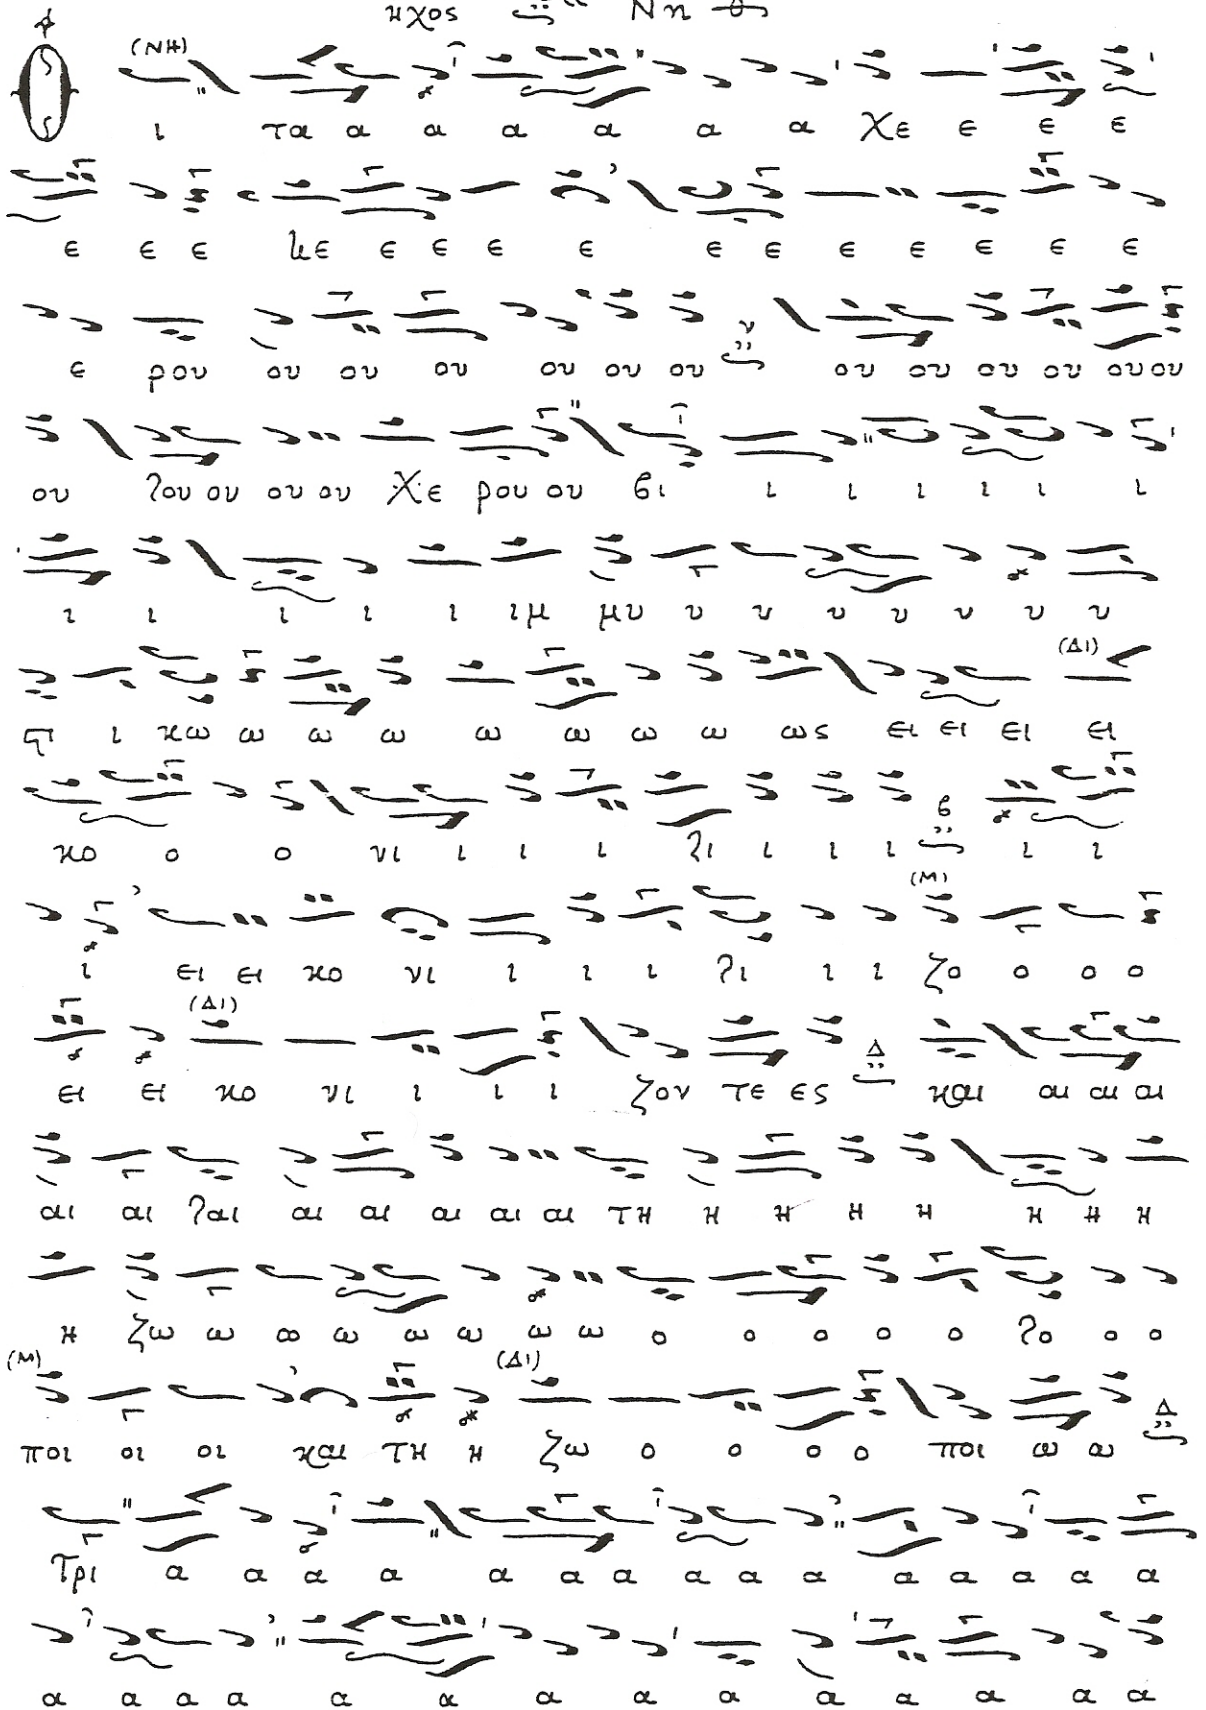 ηχος Νη
(ΝΗ)
Οι τα α α α α α α Χε ε ε ε
ε ε ε κε ε ε ε ε ε ε ε ε ε ε ε
ε ρου ου ου ου ου ου ου ου ου ου ου ου ου
ου ου ου ου ου Χε ρου ου βι ι ι ι ι ι ι
ι ι ι ι ι ιμ μυ υ υ υ υ υ υ υ
(ΔΙ)
στι ι κω ω ω ω ω ω ω ω ως ει ει ει ει
κο ο ο νι ι ι ι ι ι ι ι ι ι
(Μ)
ι ει ει κο νι ι ι ι ι ι ι ζο ο ο ο
(ΔΙ)
ει ει κο νι ι ι ι ζον τε ες και αι αι αι
αι αι αι αι αι αι αι αι τη η η η η η η η
η ζω ω ω ω ω ω ω ω ο ο ο ο ο ο ο ο
(Μ) (ΔΙ)
ποι οι οι και τη η ζω ο ο ο ο ποι ω ω
Τρι α α α α α α α α α α α α α α α
α α α α α α α α α α α α α α